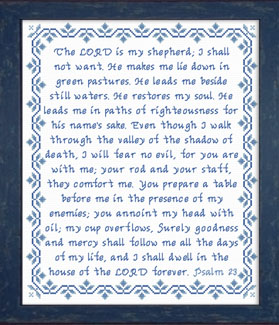 The LORD is my shepherd; I shall
not want. He makes me lie down in
green pastures. He leads me beside
still waters. He restores my soul. He
leads me in paths of righteousness for
his name's sake. Even though I walk
through the valley of the shadow of
death, I will fear no evil, for you are
with me; your rod and your staff,
they comfort me. You prepare a table
before me in the presence of my
enemies; you annoint my head with
oil; my cup overflows, Surely goodness
and mercy shall follow me all the days
of my life, and I shall dwell in the
house of the LORD forever. Psalm 23